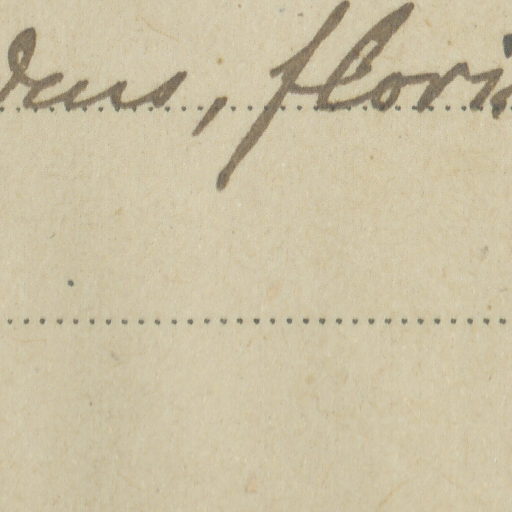 deus, flori